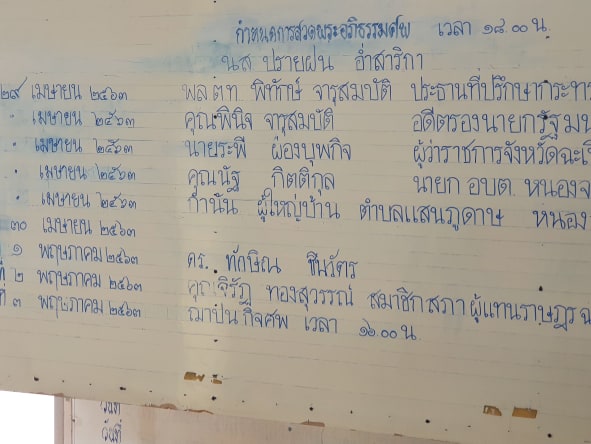 กำหนดการสวดพระอภิธรรมศพ เวลา ๑๘.๐๐ น.
น.ส ปรายฝน อ่ำสาริกา
๒๙ เมษายน ๒๕๖๓ พล.ต.ท. พิทักษ์ จารุสมบัติ ประธานที่ปรึกษากระทร
" เมษายน ๒๕๖๓ คุณพินิจ จารุสมบัติ อดีตรองนายกรัฐมน
" เมษายน ๒๕๖๓ นายระพี ผ่องบุพกิจ ผู้ว่าราชการจังหวัดฉะเ
" เมษายน ๒๕๖๓ คุณนัฐ กิตติกุล นายก อบต. หนองจ
" เมษายน ๒๕๖๓ กำนัน ผู้ใหญ่บ้าน ตำบลแสนภูดาษ หนอง
๓๐ เมษายน ๒๕๖๓
๑ พฤษภาคม ๒๕๖๓ ดร. ทักษิณ ชินวัตร
ที่ ๒ พฤษภาคม ๒๕๖๓ คุณจิรัฏ ทองสุวรรณ์ สมาชิกสภาผู้แทนราษฎร ฉ
ที่ ๓ พฤษภาคม ๒๕๖๓ ฌาปนกิจศพ เวลา ๑๖.๐๐ น.
วันที่
วันที่